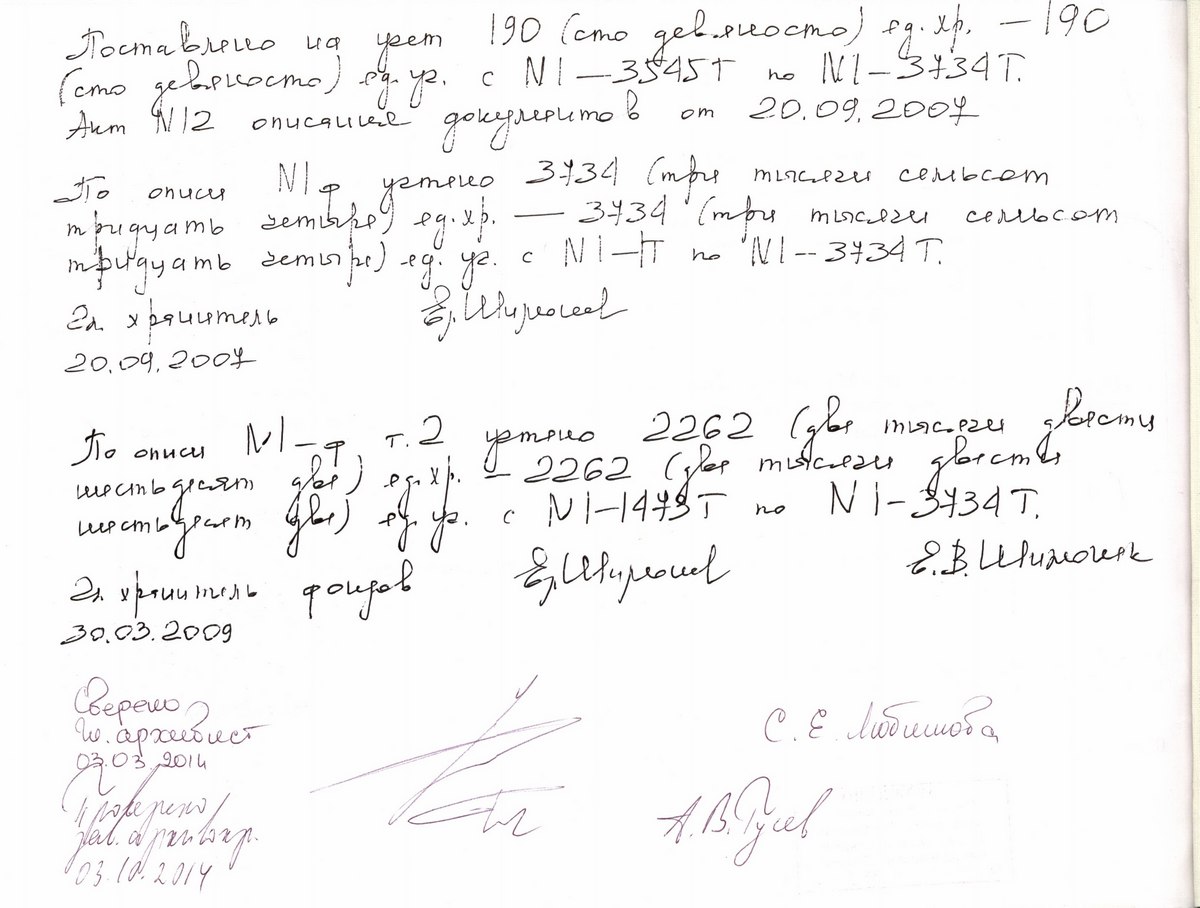 Поставлено на учет 190 (сто девяносто) ед. хр. — 190
(сто девяносто) ед. уч. с N1—3545Т по N1—3734Т.
Акт N12 описания документов от 20.09.2007
По описи N1ф учтено 3734 (три тысячи семьсот
тридцать четыре) ед. хр. — 3734 (три тысячи семьсот
тридцать четыре) ед. уч. с N1—1Т по N1--3734Т.
Гл. хранитель
20.09.2007
По описи N1-ф т.2 учтено 2262 (две тысячи двести
шестьдесят две) ед. хр. — 2262 (две тысячи двести
шестьдесят две) ед. уч. с N1—1473Т по N1-3734Т.
Гл. хранитель фондов Е.В. Шимоняк
30.03.2009
Сверено
Гл. архивист С. Е. Любишова
03.03.2014
Проверено
зав. архивохр. А.В. Гусев
03.10.2014